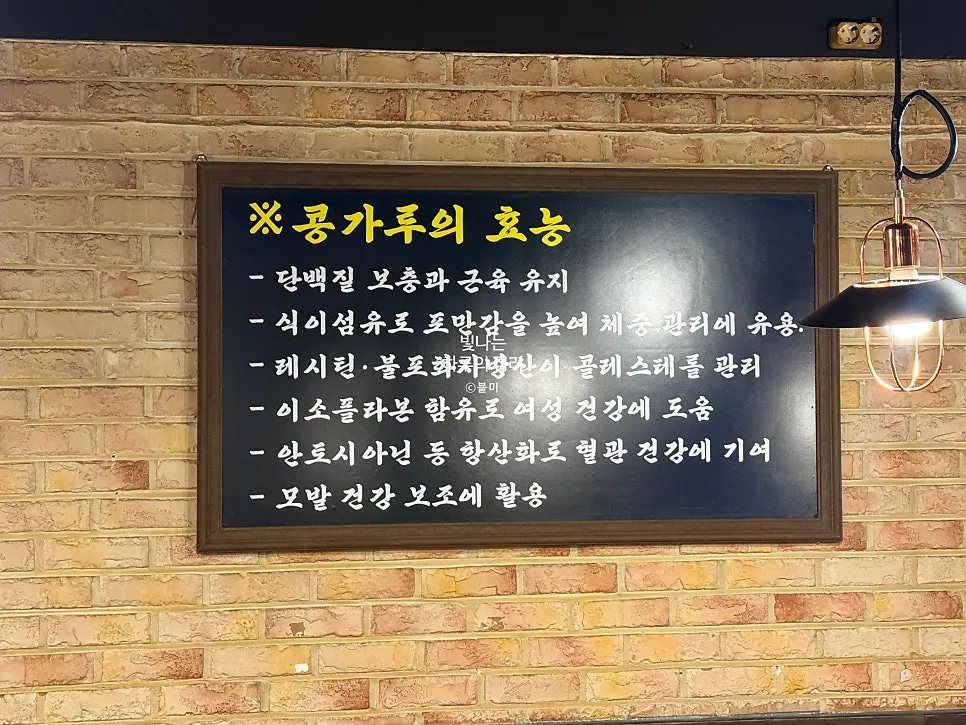 ※ 콩가루의 효능
- 단백질 보충과 근육 유지
- 식이섬유로 포만감을 높여 체중 관리에 유용.
- 레시틴·불포화지방산이 콜레스테롤 관리
- 이소플라본 함유로 여성 건강에 도움
- 안토시아닌 등 항산화로 혈관 건강에 기여
- 모발 건강 보조에 활용
빛나는
ⓒ블미